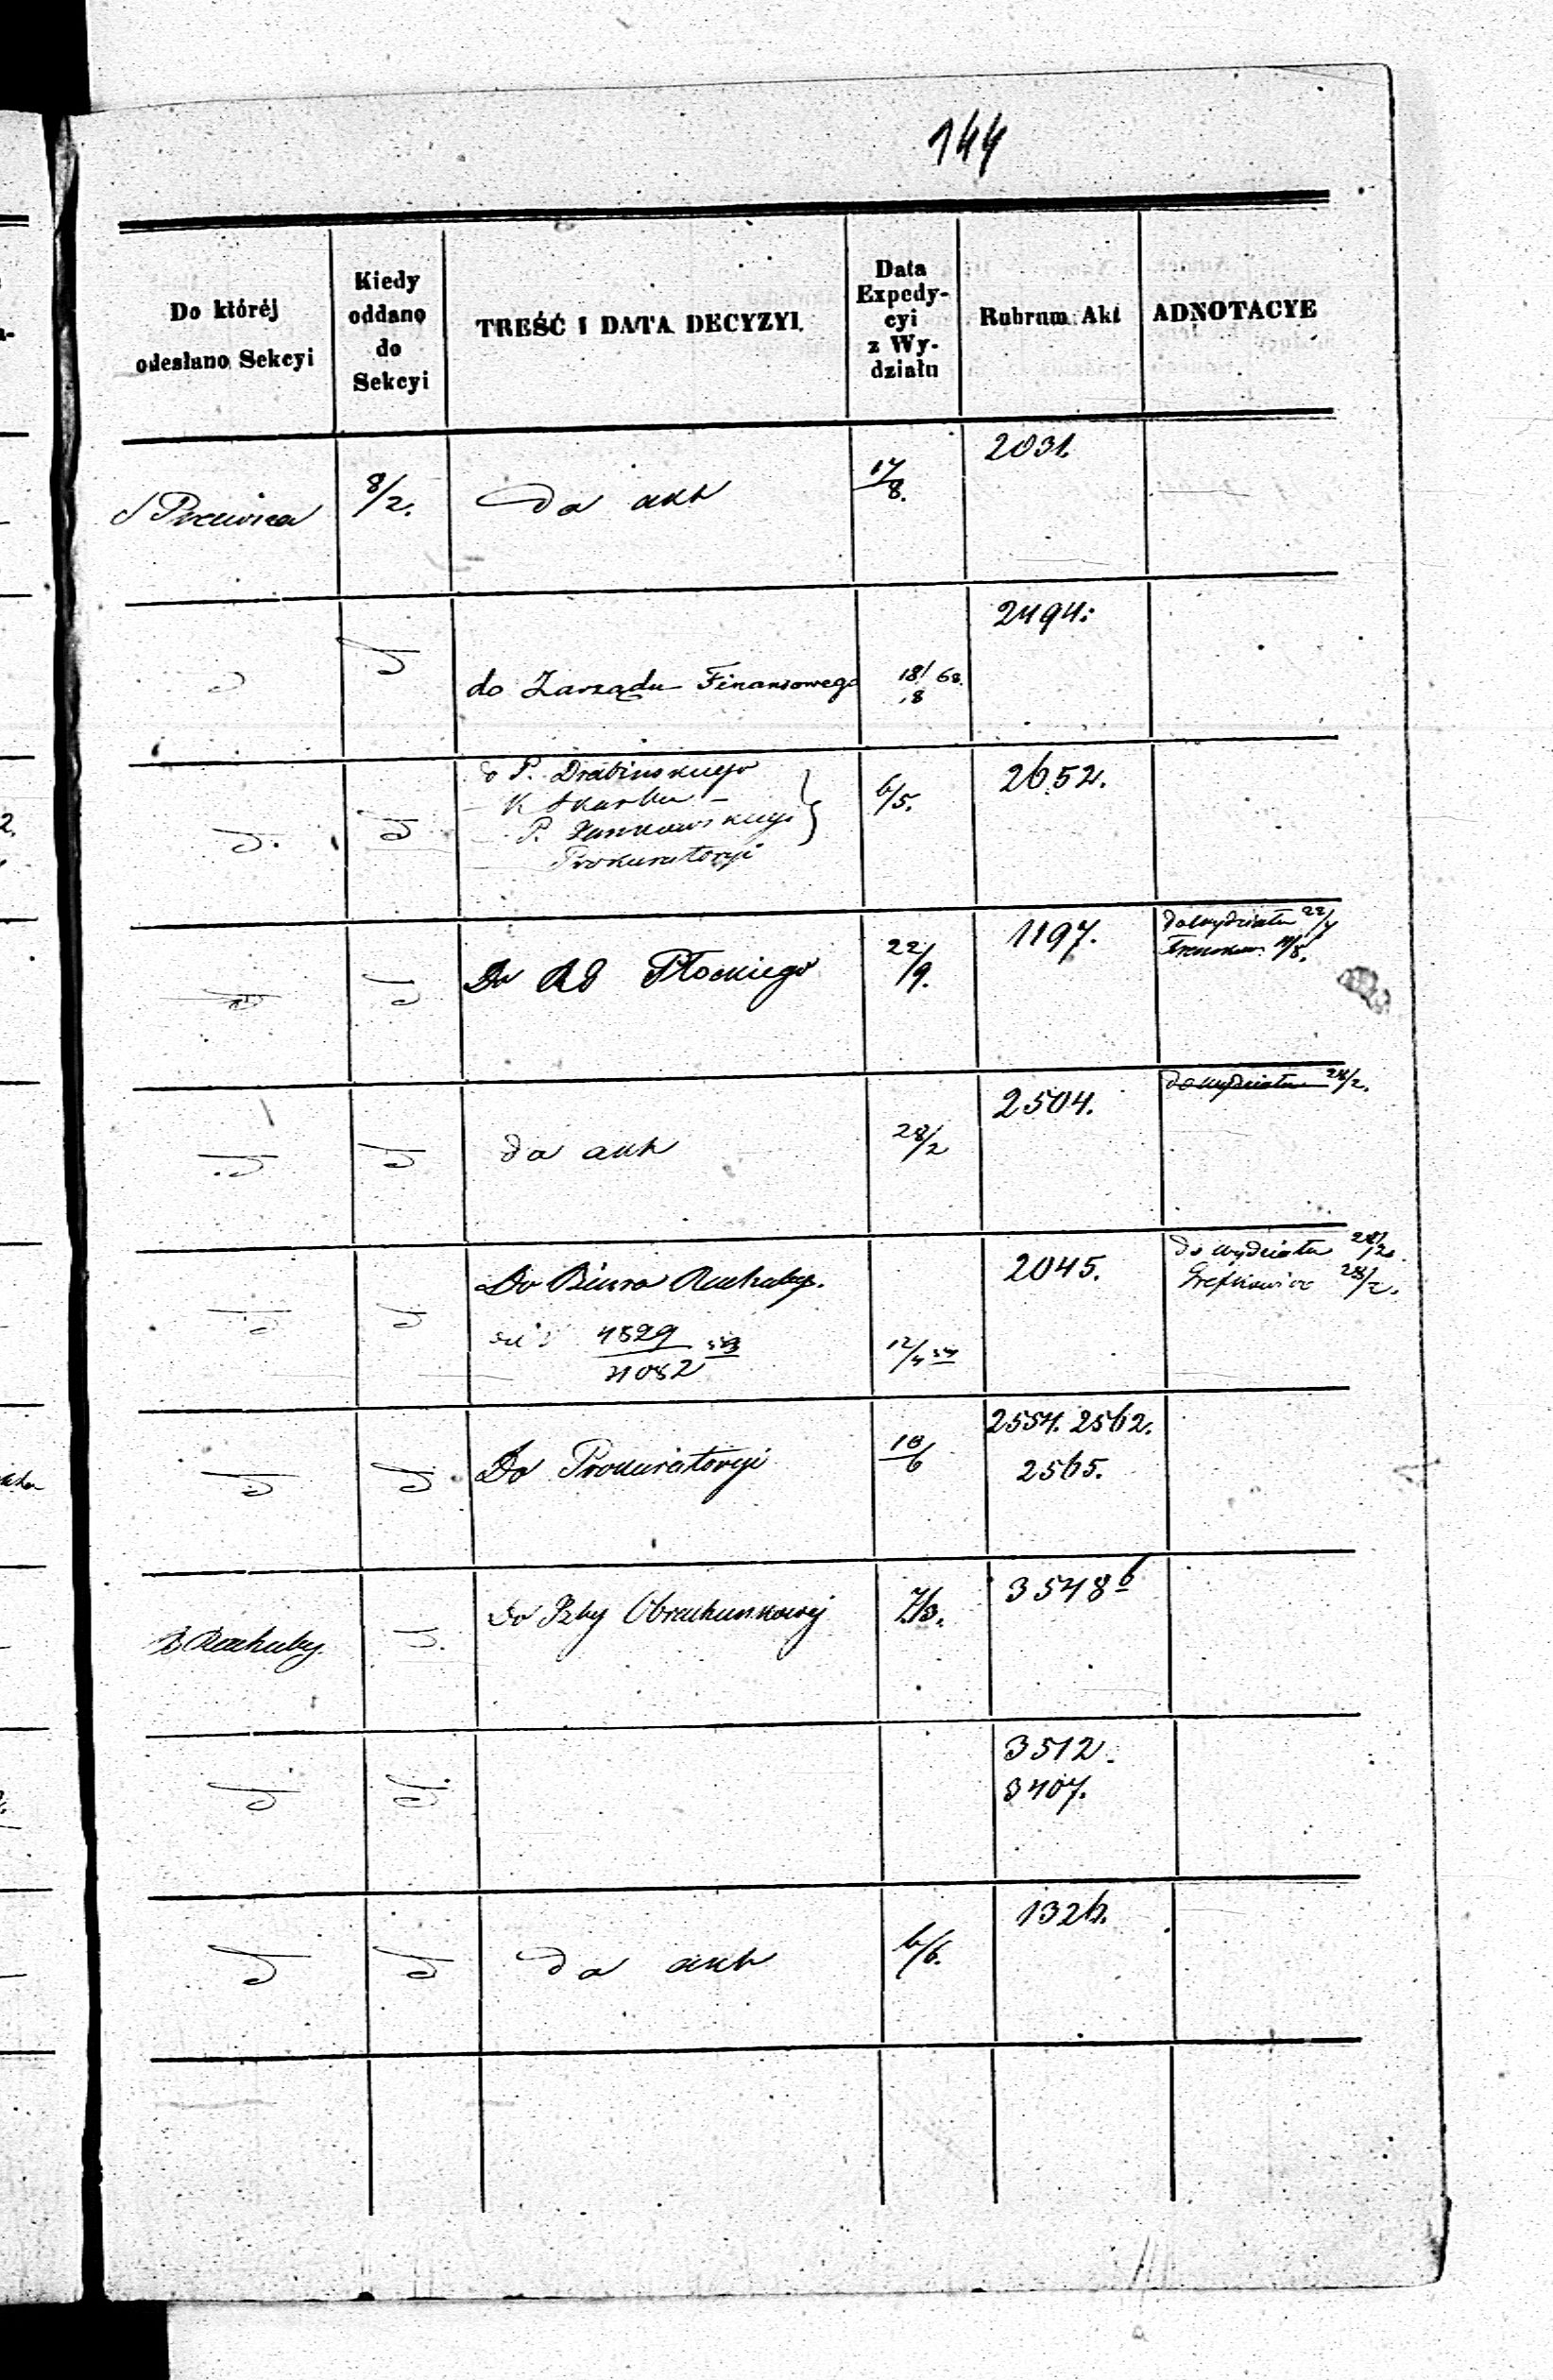 144
Do któréj odesłano Sekcyi
Kiedy oddano do Sekcyi
TREŚĆ I DATA DECYZYI
Data Expedycyi z Wydziału
Rubrum Akt
ADNOTACYE
8/2. do akt 17/8. 2031.
d d do Zarządu Finansowego 18/8 68. 2494.
d. d do P. Drabinskiego 6/5. 2652.
K Skarbu
P.
Prokuratoryi
d d Do RG Płockiego 22/9. 1197. do wydziału 22/7
d d do akt 28/2 2504. do wydziału 28/2.
d d Do Biura Rachuby. 2045. do wydziału 28/2.
4529/71082 12/4 28/2.
d d Do Prokuratoryi 10/6 2554. 2562.
2565.
Rachuby. d. Do Izby Obrachunkowej 7/3. 3548 b
d d. 3512.
3407.
d d do akt 6/6. 1326.